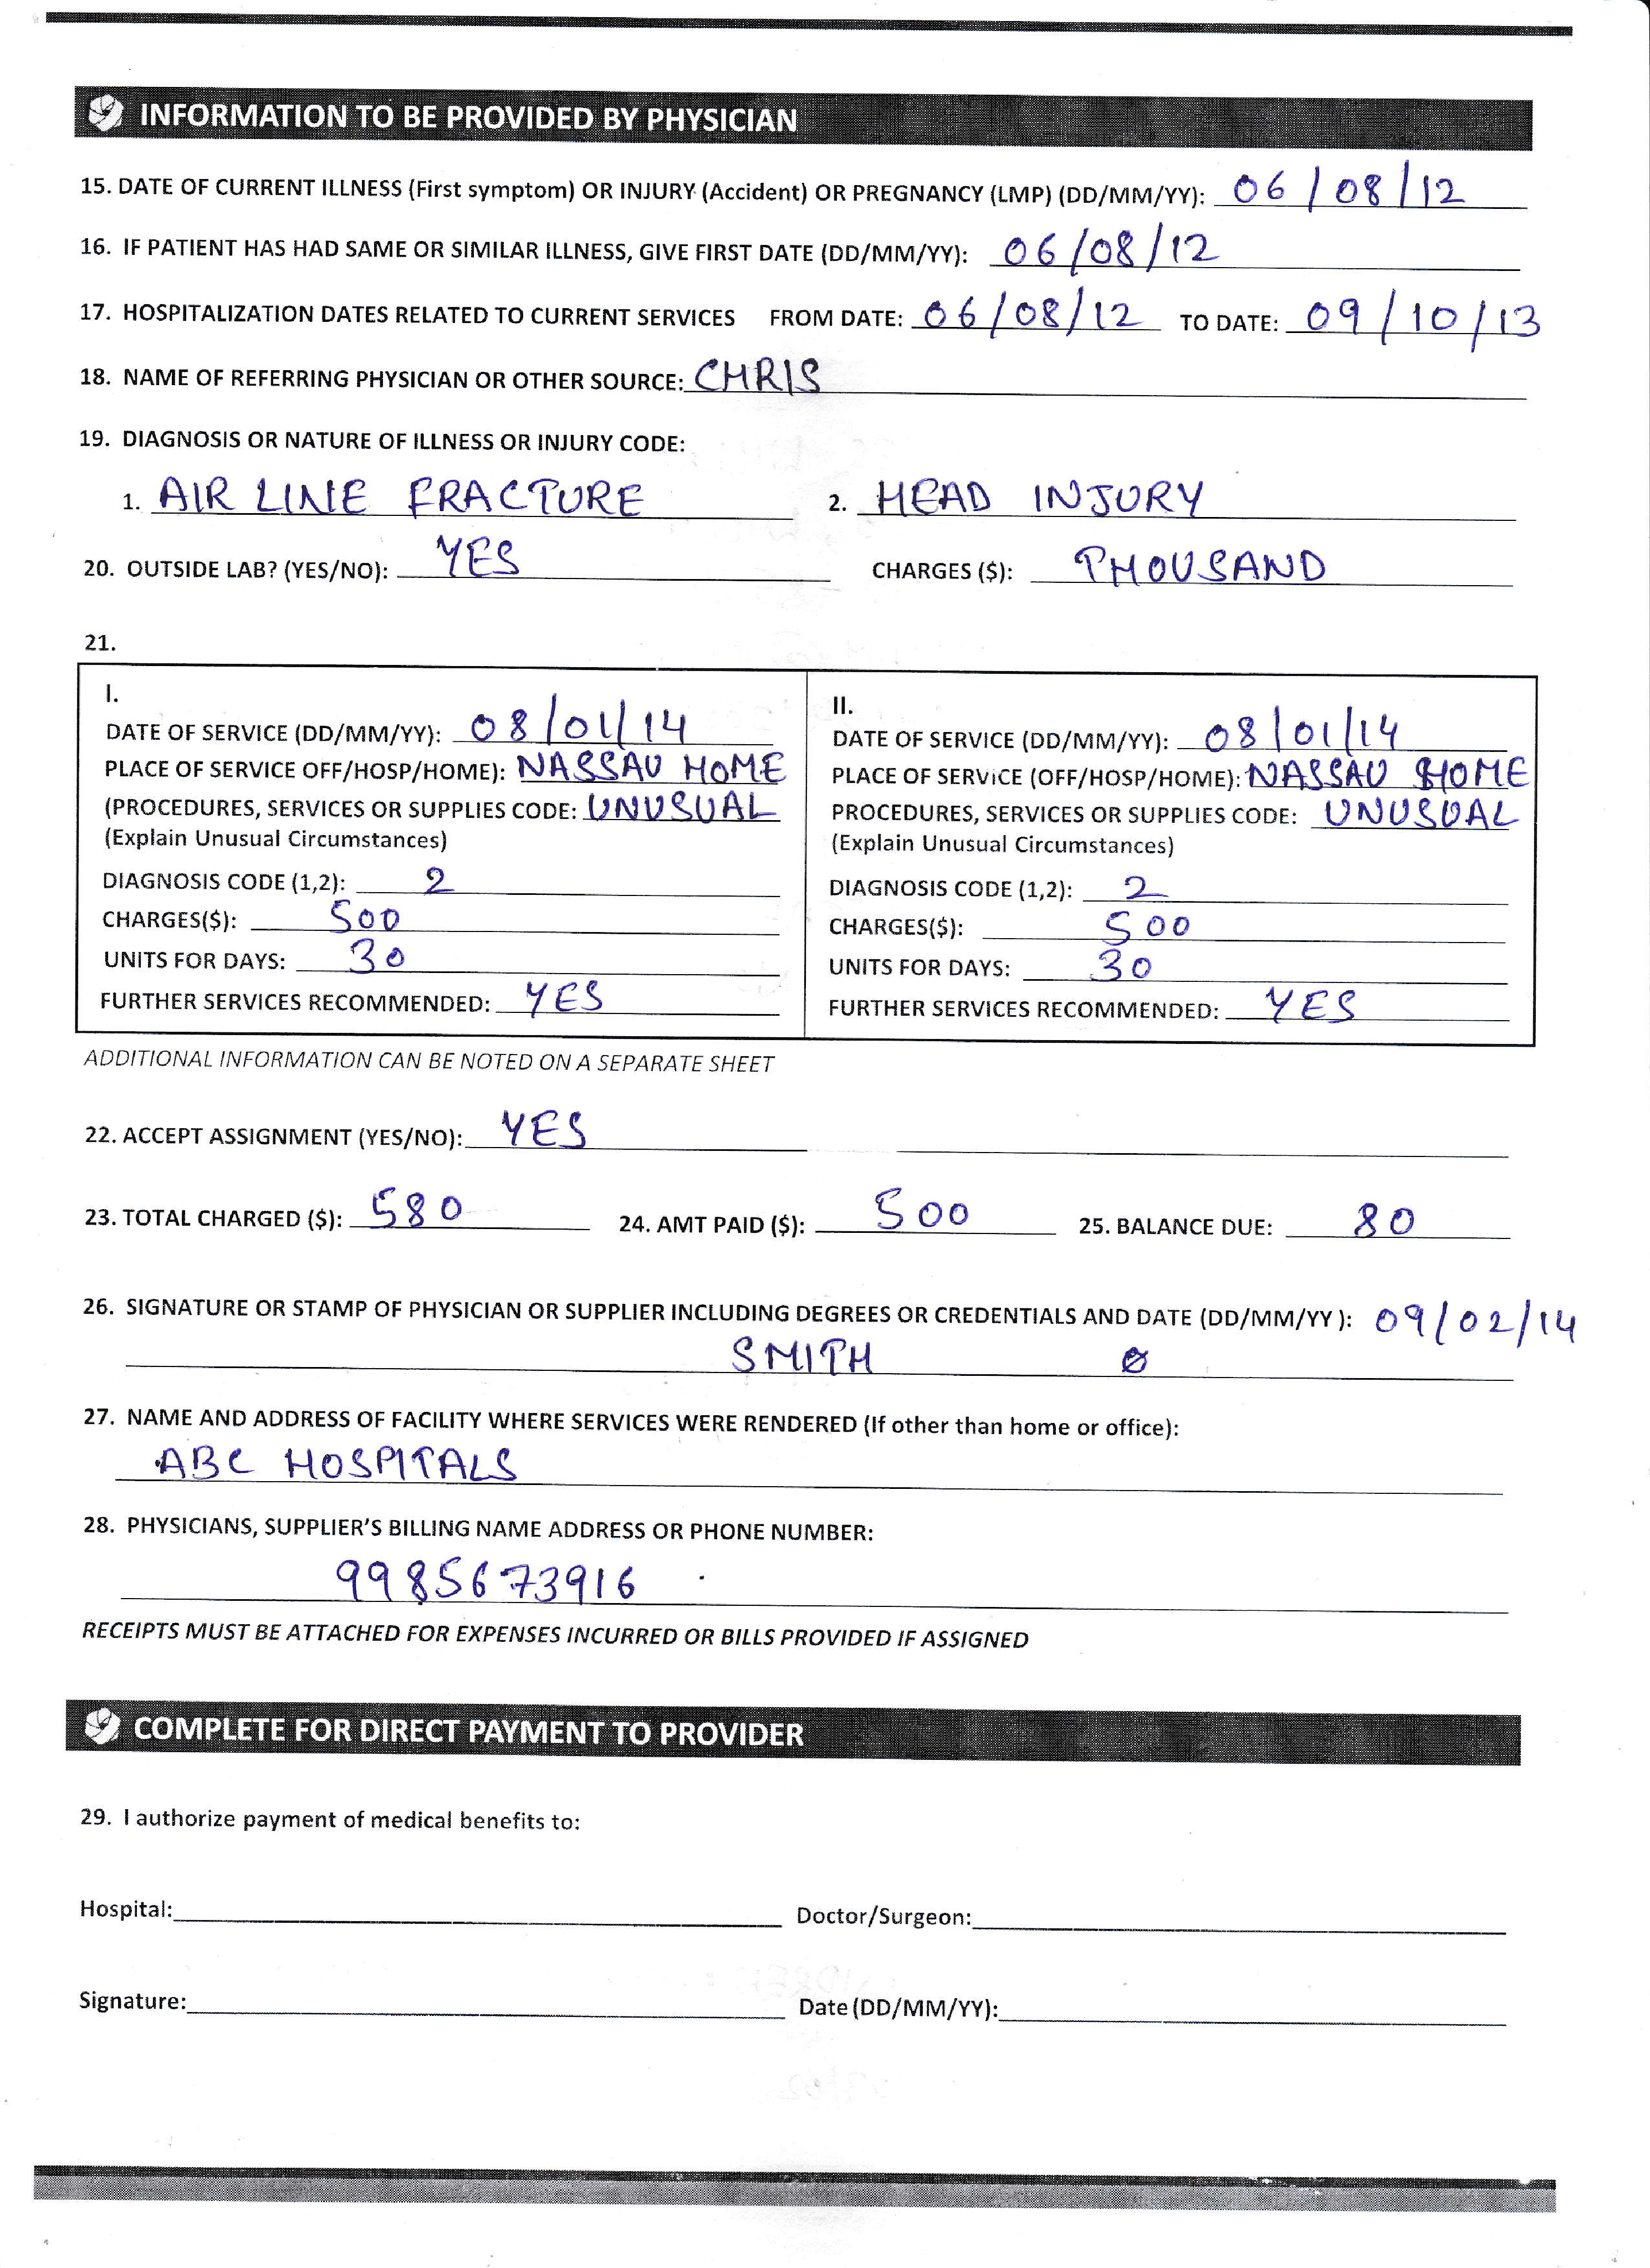 INFORMATION TO BE PROVIDED BY PHYSICIAN
15. DATE OF CURRENT ILLNESS (First symptom) OR INJURY (Accident) OR PREGNANCY (LMP) (DD/MM/YY): 06/08/12
16. IF PATIENT HAS HAD SAME OR SIMILAR ILLNESS, GIVE FIRST DATE (DD/MM/YY): 06/08/12
17. HOSPITALIZATION DATES RELATED TO CURRENT SERVICES FROM DATE: 06/08/12 TO DATE: 09/10/13
18. NAME OF REFERRING PHYSICIAN OR OTHER SOURCE: CHRIS
19. DIAGNOSIS OR NATURE OF ILLNESS OR INJURY CODE:
1. AIR LINE FRACTURE 2. HEAD INJURY
20. OUTSIDE LAB? (YES/NO): YES CHARGES ($): THOUSAND
21.
I.
DATE OF SERVICE (DD/MM/YY): 08/01/14
PLACE OF SERVICE OFF/HOSP/HOME): NASSAU HOME
(PROCEDURES, SERVICES OR SUPPLIES CODE: UNUSUAL
(Explain Unusual Circumstances)
DIAGNOSIS CODE (1,2): 2
CHARGES($): 500
UNITS FOR DAYS: 30
FURTHER SERVICES RECOMMENDED: YES
II.
DATE OF SERVICE (DD/MM/YY): 08/01/14
PLACE OF SERVICE (OFF/HOSP/HOME): NASSAU HOME
PROCEDURES, SERVICES OR SUPPLIES CODE: UNUSUAL
(Explain Unusual Circumstances)
DIAGNOSIS CODE (1,2): 2
CHARGES($): 500
UNITS FOR DAYS: 30
FURTHER SERVICES RECOMMENDED: YES
ADDITIONAL INFORMATION CAN BE NOTED ON A SEPARATE SHEET
22. ACCEPT ASSIGNMENT (YES/NO): YES
23. TOTAL CHARGED ($): 580 24. AMT PAID ($): 500 25. BALANCE DUE: 80
26. SIGNATURE OR STAMP OF PHYSICIAN OR SUPPLIER INCLUDING DEGREES OR CREDENTIALS AND DATE (DD/MM/YY ): 09/02/14
SMITH
27. NAME AND ADDRESS OF FACILITY WHERE SERVICES WERE RENDERED (If other than home or office):
ABC HOSPITALS
28. PHYSICIANS, SUPPLIER'S BILLING NAME ADDRESS OR PHONE NUMBER:
9985673916
RECEIPTS MUST BE ATTACHED FOR EXPENSES INCURRED OR BILLS PROVIDED IF ASSIGNED
COMPLETE FOR DIRECT PAYMENT TO PROVIDER
29. I authorize payment of medical benefits to:
Hospital: Doctor/Surgeon:
Signature: Date (DD/MM/YY):